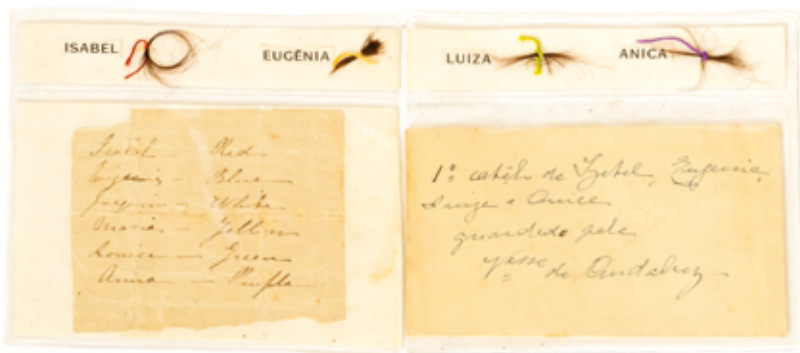 ISABEL
EUGÊNIA
LUIZA
ANICA
Isabel — Red
Eugenia — Blue
— White
Maria — Yellow
Louisa — Green
Anna — Purple
1º cabêlo de Izabel, Eugenia,
Luiza e Anica
guardado pela
de Andaluz